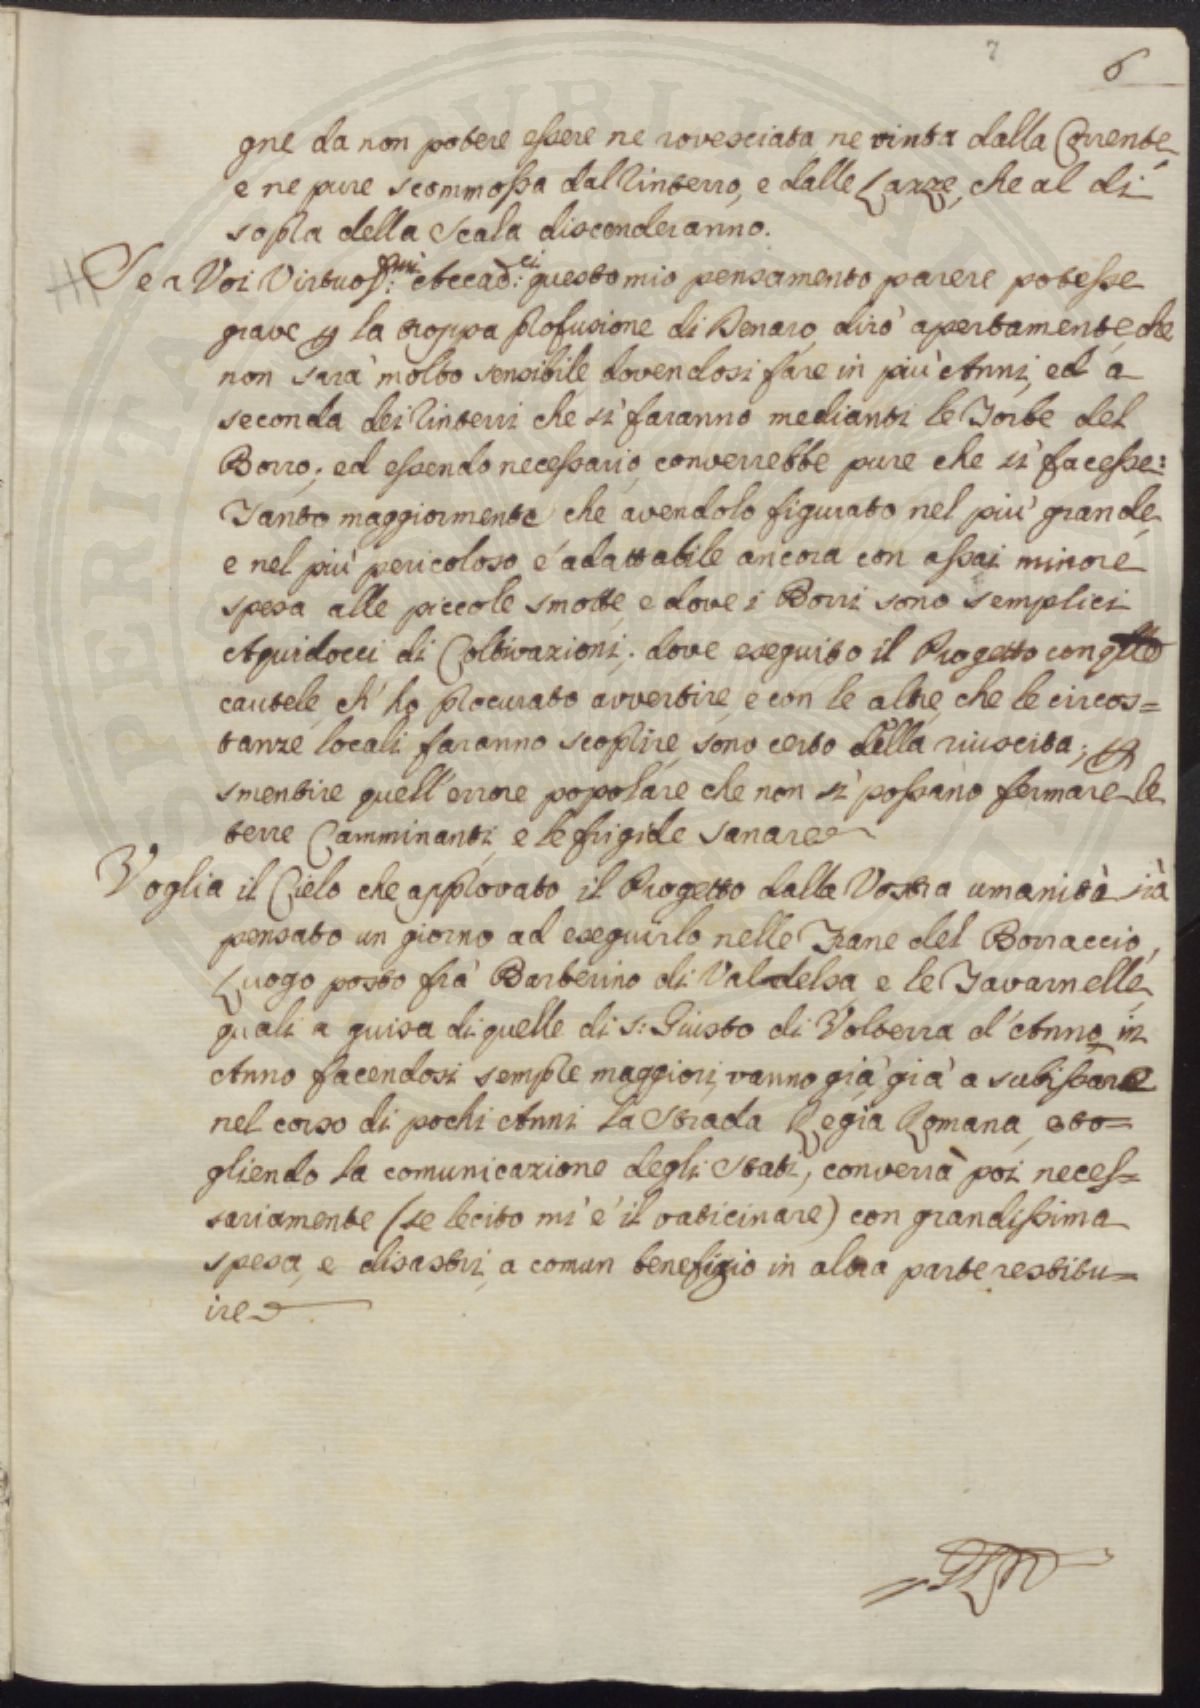 7
6
gne da non potere essere ne rovesciata, ne vinta dalla Corrente,
e ne pure scommossa dal Rinterro, e dalle Lazze, che al di
sopra della Scala discenderanno.
Se a Voi Virtuos:mi Accad:ci questo mio pensamento parere potesse
grave p la troppa profusione di Denaro, dirò apertamente, che
non sarà molto sensibile, dovendosi fare in più Anni, ed a
seconda dei Rinterri che si faranno medianti le Torbe del
Borro; ed essendo necessario, converrebbe pure che si facesse:
Tanto maggiormente che avendolo figurato nel più grande,
e nel più pericoloso è adattabile ancora con assai minore
spesa alle piccole smotte, e dove i Borri sono semplici
Aquidocci di Coltivazioni; dove eseguito il Progetto con qlle
cautele, ch' ho procurato avvertire, e con le altre, che le circos=
tanze locali faranno scoprire, sono certo della riuscita; p
smentire quell'errore popolare che non si possano fermare le
terre Camminanti, e le frigide sanare
Voglia il Cielo che approvato il Progetto dalla Vostra umanità sia
pensato un giorno ad eseguirlo nelle Frane del Borraccio,
Luogo posto frà Barberino di Valdelsa, e le Tavarnelle,
quali a guisa di quelle di S: Giusto di Volterra d'Anno in
Anno facendosi sempre maggiori, vanno già già a subissare
nel corso di pochi Anni la Strada Regia Romana, e to=
gliendo la comunicazione degli Stati, converrà poi neces=
sariamente (se lecito mi è il vaticinare) con grandissima
spesa, e disastri, a comun benefizio in altra parte restitu=
ire